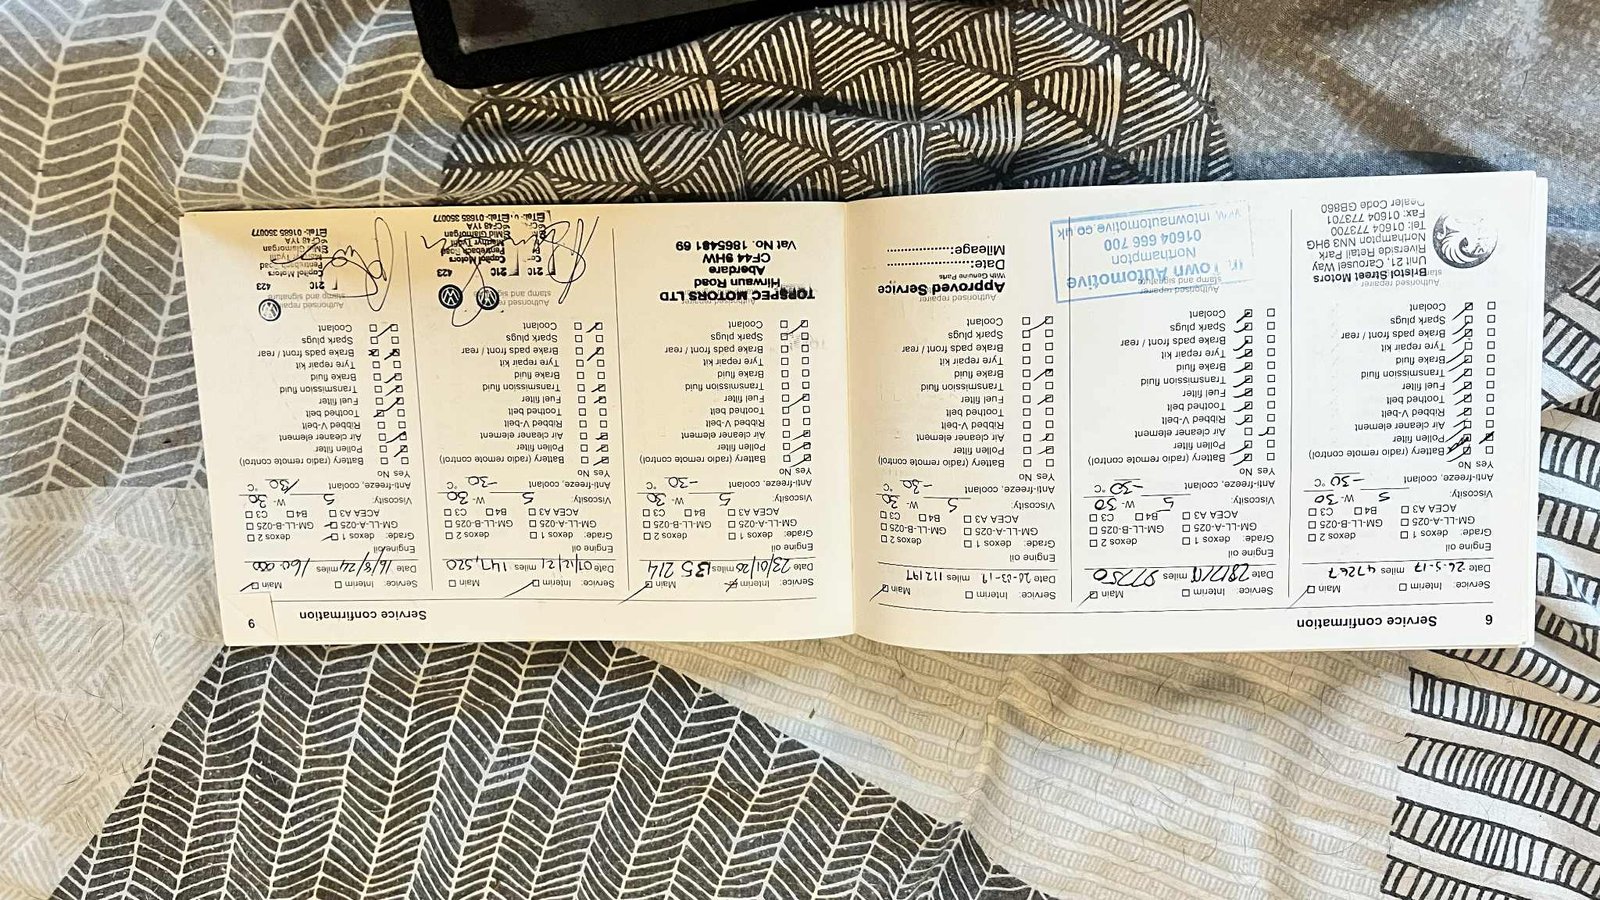 6
Service confirmation
Service: Interim Main
Date 26-5-17 miles 4267
Engine oil
Grade: dexos 1 dexos 2
GM-LL-A-025 GM-LL-B-025
ACEA A3 B4 C3
Viscosity: 5 W- 30
Anti-freeze, coolant -30 °C
Yes No
Battery (radio remote control)
Pollen filter
Air cleaner element
Ribbed V-belt
Toothed belt
Fuel filter
Transmission fluid
Brake fluid
Tyre repair kit
Brake pads front / rear
Spark plugs
Coolant
Authorised repairer
Bristol Street Motors
Unit 21, Carousel Way
Riverside Retail Park
Northampton NN3 9HG
Tel: 01604 773700
Fax: 01604 773701
Dealer Code GB860
Service: Interim Main
Date 28/12/17 miles 97750
Engine oil
Grade: dexos 1 dexos 2
GM-LL-A-025 GM-LL-B-025
ACEA A3 B4 C3
Viscosity: 5 W- 30
Anti-freeze, coolant -30 °C
Yes No
Battery (radio remote control)
Pollen filter
Air cleaner element
Ribbed V-belt
Toothed belt
Fuel filter
Transmission fluid
Brake fluid
Tyre repair kit
Brake pads front / rear
Spark plugs
Coolant
Authorised repairer
stamp and signature
In Town Automotive
Northampton
01604 666 700
www.intownautomotive.co.uk
Service: Interim Main
Date 20-03-19 miles 112197
Engine oil
Grade: dexos 1 dexos 2
GM-LL-A-025 GM-LL-B-025
ACEA A3 B4 C3
Viscosity: 5 W- 30
Anti-freeze, coolant -30 °C
Yes No
Battery (radio remote control)
Pollen filter
Air cleaner element
Ribbed V-belt
Toothed belt
Fuel filter
Transmission fluid
Brake fluid
Tyre repair kit
Brake pads front / rear
Spark plugs
Coolant
Authorised repairer
Approved Service
With Genuine Parts
Date:
Mileage:
9
Service confirmation
Service: Interim Main
Date 23/01/20 miles 135 214
Engine oil
Grade: dexos 1 dexos 2
GM-LL-A-025 GM-LL-B-025
ACEA A3 B4 C3
Viscosity: 5 W- 30
Anti-freeze, coolant -30 °C
Yes No
Battery (radio remote control)
Pollen filter
Air cleaner element
Ribbed V-belt
Toothed belt
Fuel filter
Transmission fluid
Brake fluid
Tyre repair kit
Brake pads front / rear
Spark plugs
Coolant
TORSPEC MOTORS LTD
Hirwaun Road
Aberdare
CF44 9HW
Vat No. 1865481 69
Service: Interim Main
Date 07/12/21 miles 147,520
Engine oil
Grade: dexos 1 dexos 2
GM-LL-A-025 GM-LL-B-025
ACEA A3 B4 C3
Viscosity: 5 W- 30
Anti-freeze, coolant -30 °C
Yes No
Battery (radio remote control)
Pollen filter
Air cleaner element
Ribbed V-belt
Toothed belt
Fuel filter
Transmission fluid
Brake fluid
Tyre repair kit
Brake pads front / rear
Spark plugs
Coolant
Authorised repairer
stamp and signature
210 423
Capitol Motors
Pentrebach Road
Merthyr Tydfil
Mid Glamorgan
CF48 1YA
Tel:- 01685 350077
Service: Interim Main
Date 16/8/24 miles 160000
Engine oil
Grade: dexos 1 dexos 2
GM-LL-A-025 GM-LL-B-025
ACEA A3 B4 C3
Viscosity: 5 W- 30
Anti-freeze, coolant °C
Yes No
Battery (radio remote control)
Pollen filter
Air cleaner element
Ribbed V-belt
Toothed belt
Fuel filter
Transmission fluid
Brake fluid
Tyre repair kit
Brake pads front / rear
Spark plugs
Coolant
Authorised repairer
stamp and signature
210 423
Capitol Motors
Mid Glamorgan
CF48 1YA
Tel:- 01685 350077